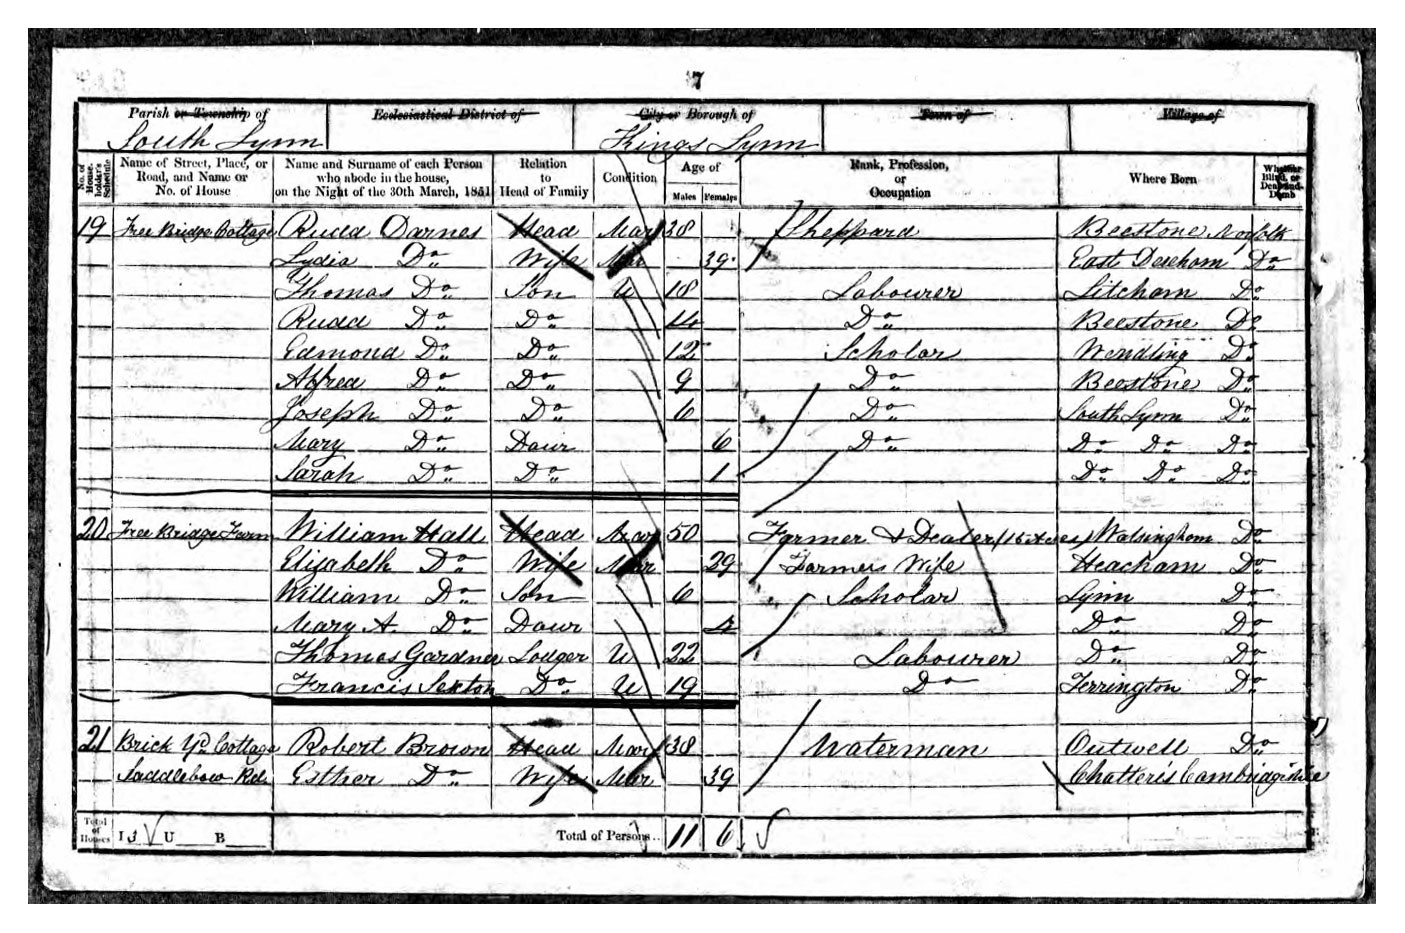 7
Parish or Township of Ecclesiastical District of City or Borough of Town of Village of
South Lynn Kings Lynn
No. of House-holder's Schedule Name of Street, Place, or Road, and Name or No. of House Name and Surname of each Person who abode in the house, on the Night of the 30th March, 1851 Relation to Head of Family Condition Age of Males Females Rank, Profession, or Occupation Where Born Whether Blind, or Deaf-and-Dumb
19 Free Bridge Cottage Rudd Darnes Head Mar 38 Sheppard Beestone Norfolk
Lydia Do Wife Mar 39 East Dereham Do
Thomas Do Son U 18 Labourer Litcham Do
Rudd Do Do 14 Do Beestone Do
Edmond Do Do 12 Scholar Wendling Do
Alfred Do Do 9 Do Beestone Do
Joseph Do Do 6 Do South Lynn Do
Mary Do Daur 6 Do Do Do Do
Sarah Do Do 1 Do Do Do
20 Free Bridge Farm William Hall Head Mar 50 Farmer & Dealer (15 Acres) Walsingham Do
Elizabeth Do Wife Mar 29 Farmers Wife Heacham Do
William Do Son 6 Scholar Lynn Do
Mary A. Do Daur Do Do
Thomas Gardner Lodger U 22 Labourer Do Do
Francis Sexton Do U 19 Do Terrington Do
21 Brick Yd Cottage Robert Brown Head Mar 38 Waterman Outwell Do
Saddlebow Rd Esther Do Wife Mar 39 Chatteris Cambridgeshire
Total of Houses I 3 U B Total of Persons 11 6